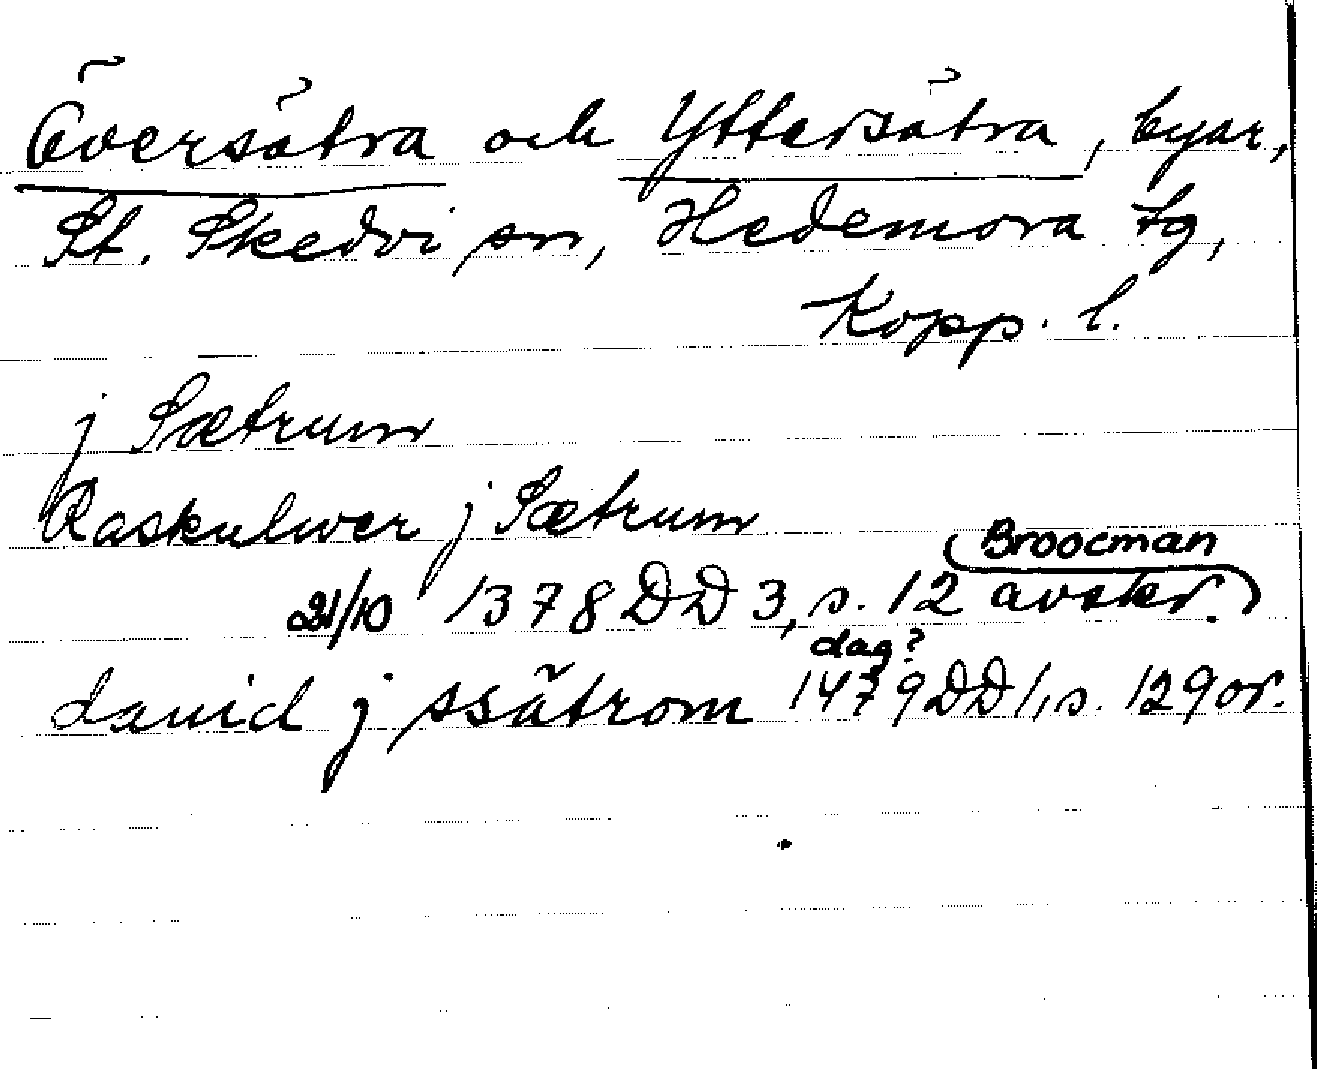 Översätra och Yttersätra, byar,
St. Skedvi sn, Hedemora tg,
Kopp. l.
j Sætrum
Raskulwer j Sætrum
(Broocman
21/10 1378 DD 3, s. 12 avskr.)
dag?
dauid j ssätrom 1479 DD 1, s. 129 or.